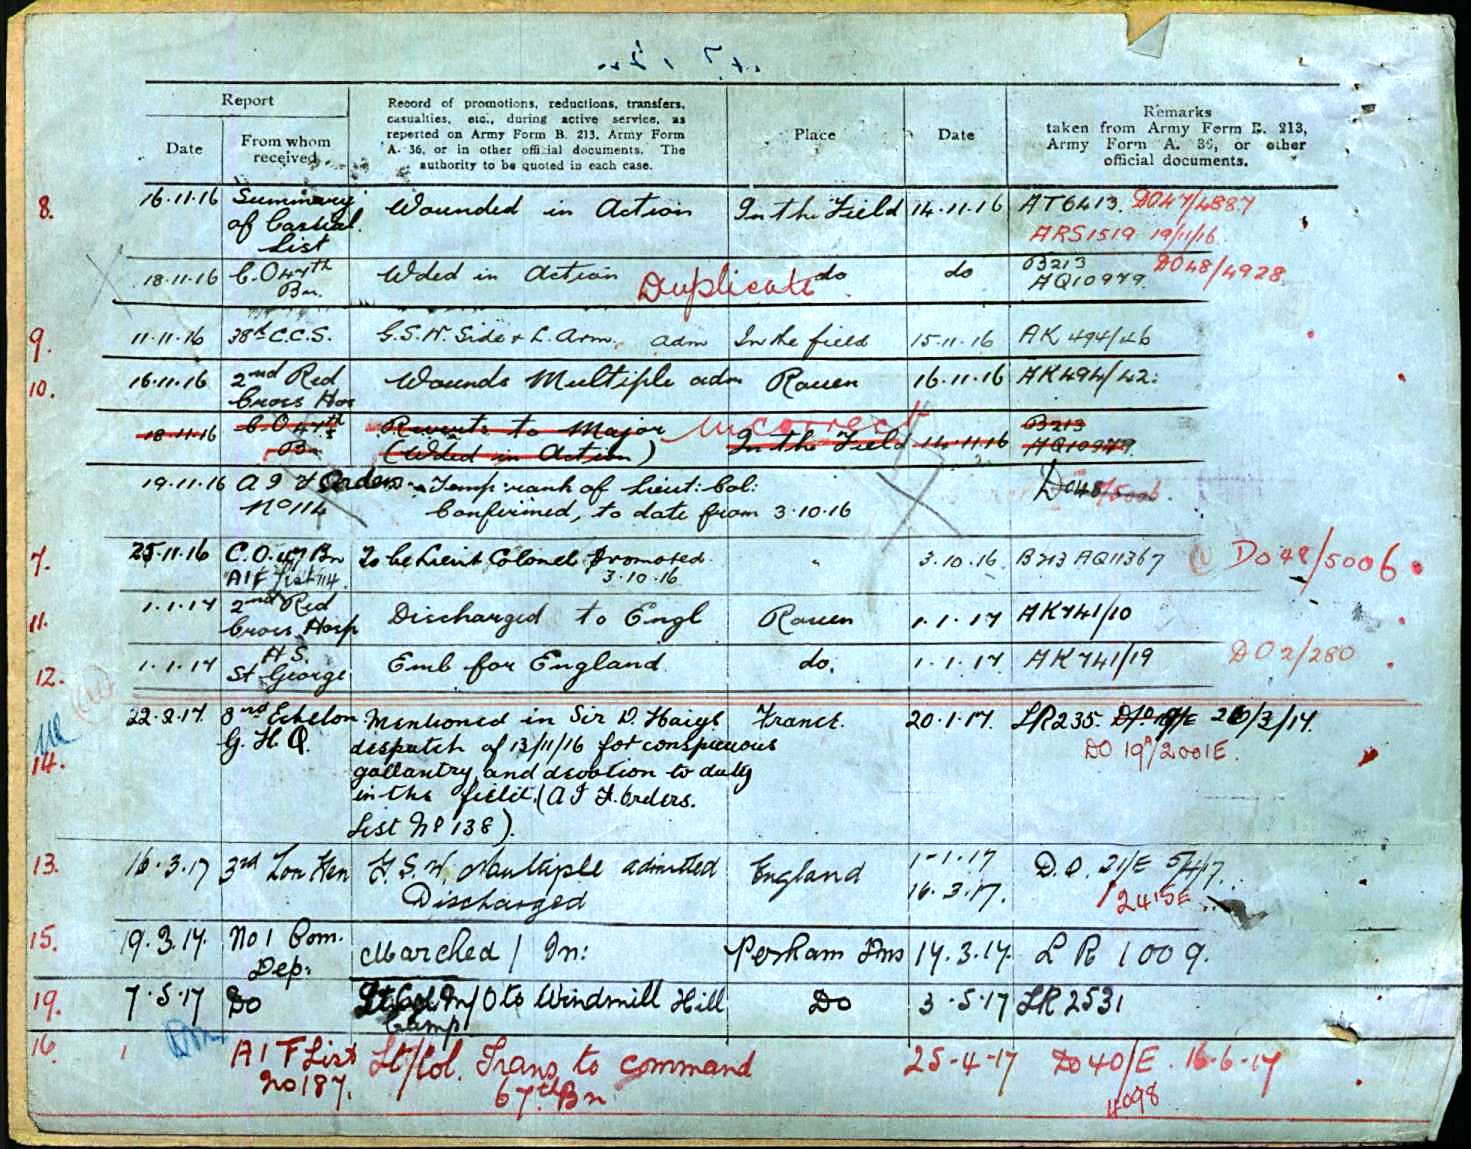 Report
Date
From whom
received
Record of promotions, reductions, transfers,
casualties, etc., during active service, as
reported on Army Form B. 213, Army Form
A. 36, or in other official documents. The
authority to be quoted in each case.
Place
Date
Remarks
taken from Army Form B. 213,
Army Form A. 36, or other
official documents.
8. 16.11.16 Summary Wounded in Action In the Field 14.11.16 AT6413. DO47/4887
of Casual. ARS1519 19/11/16
List
18.11.16 C.O 47th Wded in Action Duplicate do do B213 DO48/4928
Bn. AQ10979.
9. 11.11.16 38th C.C.S. G.S.W. Side & L. Arm. adm In the field 15.11.16 AK 494/46
10. 16.11.16 2nd Red Wounds Multiple adm Rouen 16.11.16 AK494/42.
Cross Hos
18.11.16 C.O 47th Reverts to Major Incorrect B213
Bn (Wded in Action) In the Field 14.11.16 AQ10979.
19.11.16 A I F Orders Temp: rank of Lieut: Col: DO48/5006
No 114 Confirmed, to date from 3.10.16
7. 25.11.16 C.O. 47 Bn To be Lieut Colonel Promoted " 3.10.16 B213 AQ11367 DO 48/5006
AIF List 114. 3.10.16
11. 1.1.17 2nd Red Discharged to Engl Rouen 1.1.17 AK741/10
Cross Hosp
12. 1.1.17 H.S. Emb for England do. 1.1.17 AK 741/19 DO 2/280
St George
22.2.17. 3rd Echelon Mentioned in Sir D. Haigs France. 20.1.17. LR235. 20/3/17.
14. G. H. Q. despatch of 13/11/16 for conspicuous DO 19/2001E.
gallantry and devotion to duty
in the field. (A I F. Orders.
List No 138).
13. 16.3.17 3rd Lon Gen G.S.W. Multiple admitted England 1-1.17 D.O. 21/E 5/4/17.
Discharged 16.3.17. 2415E
15. 19.3.17. No 1 Com. Marched / In: Perham Dns 17.3.17. L R 1009.
Dep:
19. 7.5.17 Do Lt Col M/O to Windmill Hill Do 3.5.17 LR 2531
Camp
16. A I F List Lt/Col. Trans to command 25-4-17 DO 40/E. 16-6-17
No 187. 67th Bn 4098